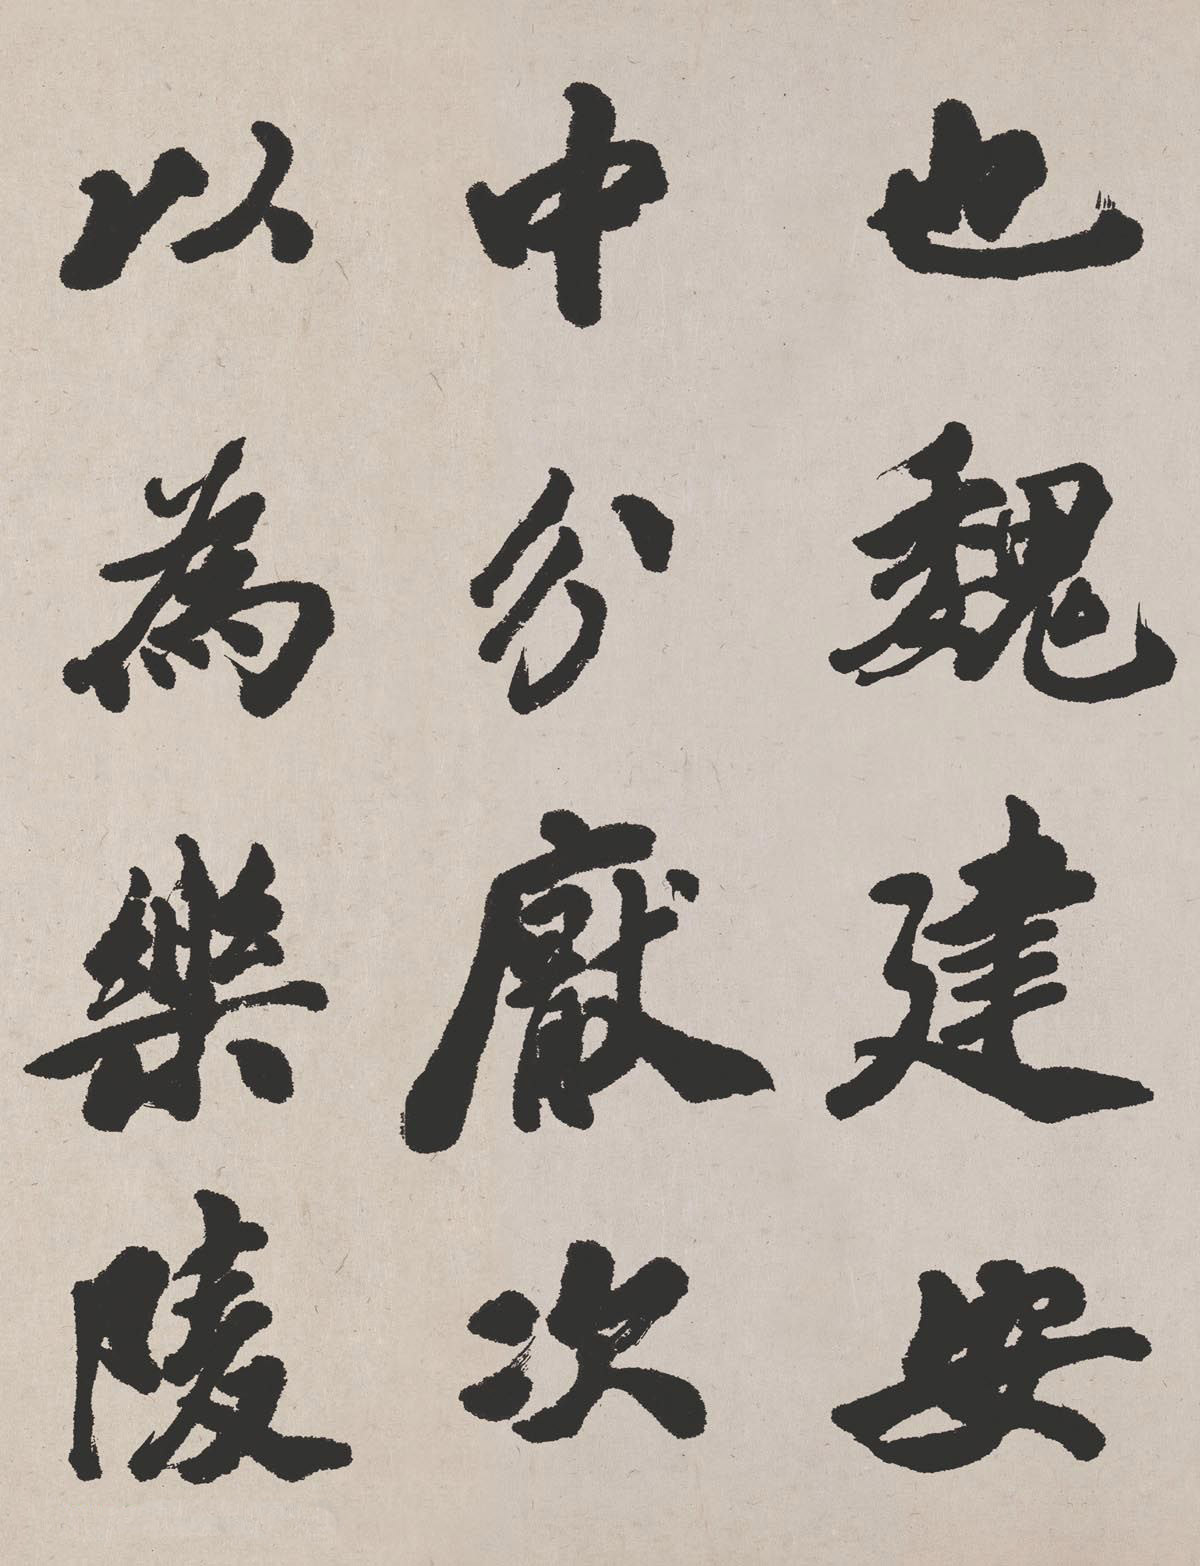 也魏建安
中分厭次
以為樂陵